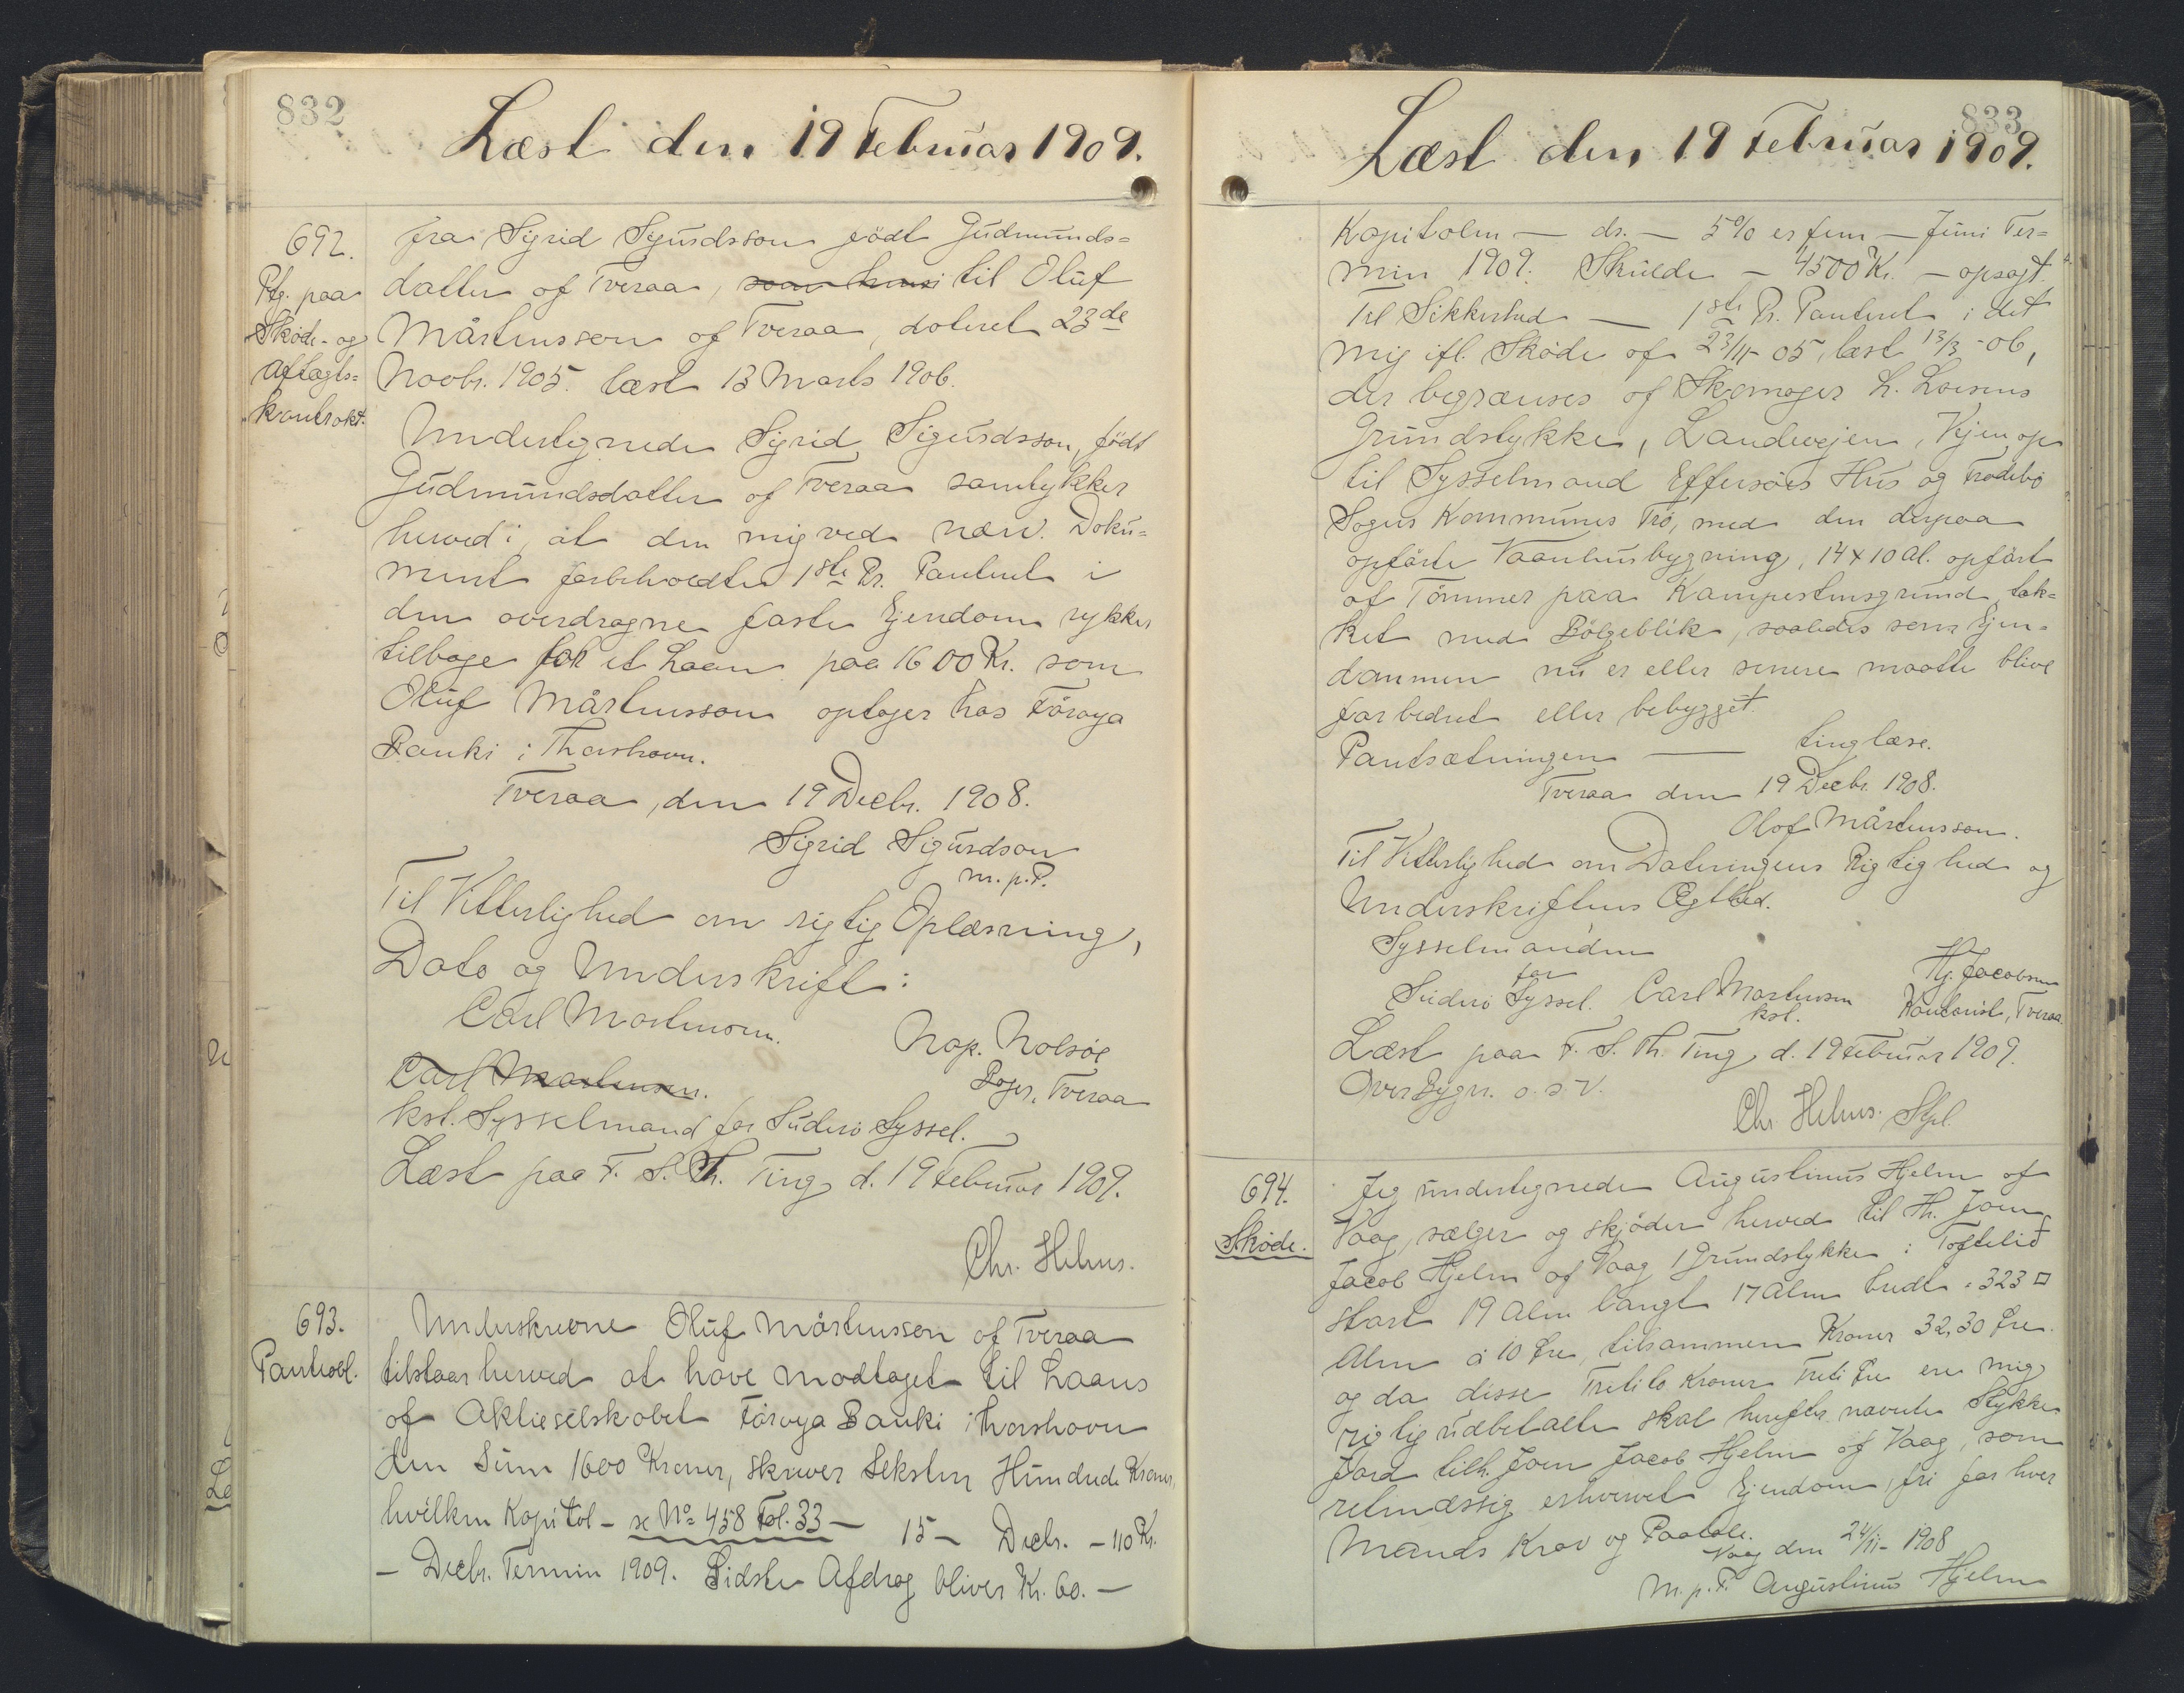 832
Læst den 19 Februar 1909.
692.
Ptg. paa
Skøde- og
Aftægts=
kontrakt.
fra Sigrid Sigurdsson født Gudmunds=
datter af Tveraa, til Oluf
Mårtensson af Tveraa, dateret 23de
Novbr. 1905. læst 13 Marts 1906.
Undertegnede Sigrid Sigurdsson, født
Gudmundsdatter af Tveraa samtykker
herved i, at den mig ved nærv. Doku=
ment forbeholdte 1ste Pr. Panteret i
den overdragne faste Ejendom rykker
tilbage for et Laan paa 1600 Kr. som
Oluf Mårtensson optager hos Föroya
Banki i Thorshavn.
Tveraa, den 19 Decbr. 1908.
Sigrid Sigurdson
m. p. P.
Til Vitterlighed om rigtig Oplæsning,
Dato og Underskrift:
Carl Mortensen.
Nap. Nolsøe
Carl Mortensen.
Bager, Tveraa
kst. Sysselmand for Suderø Syssel.
Læst paa F. S. Th. Ting d. 19 Februar 1909.
Chr. Helms.
693.
Panteobl.
Underskrevne Oluf Mårtensson af Tveraa
tilstaar herved at have modtaget til Laans
af Aktieselskabet Föroya Banki i Thorshavn
den Sum 1600 Kroner, skriver Seksten Hundrede Kroner,
hvilken Kapital - se No 458 Fol. 33 - 15 - Decbr. - 110 Kr.
- Decbr. Termin 1909. Sidste Afdrag bliver Kr. 60. -
833
Læst den 19 Februar 1909.
Kapitalen - dr. - 5% er fem - Juni Ter=
min 1909. Skulde - 4500 Kr. - opsagt.
Til Sikkerhed - 1ste Pr. Panteret i det
mig ifl. Skøde af 23/11-05, læst 13/3-06,
der begrænses af Skomager H. Larsens
Grundstykke, Landevejen, Vejen op
til Sysselmand Effersøes Hus og Frodebø
Sogns Kommunes Trø, med den derpaa
opførte Vaaningsbygning, 14 x 10 Al. opført
af Tømmer paa Kampestensgrund, tæk=
ket med Bølgeblik, saaledes som Ejen=
dommen nu er eller senere maatte blive
forbedret eller bebygget.
Pantsætningen - tinglæse.
Tveraa den 19 Decbr. 1908.
Olof Mårtensson.
Til Vitterlighed om Dateringens Rigtighed og
Underskriftens Ægthed.
Sysselmanden
for
Suderø Syssel. Carl Mortensen
kst.
Hj. Jacobsen
Kontorist, Tveraa.
Læst paa F. S. Th. Ting d. 19 Februar 1909.
Over Bygn. o. s. v.
Chr. Helms. Stpl.
694.
Skøde.
Jeg undertegnede Augustinus Hjelm af
Vaag, sælger og skjøder herved til Hr. Joen
Jacob Hjelm af Vaag 1 Grundstykke i Toftelið
stort 19 Alen langt 17 Alen bredt = 323 □
Alen à 10 Øre, tilsammen Kroner 32,30 Øre.
og da disse Treti to Kroner Treti Øre ere mig
rigtig udbetalte skal herefter nævnte Stykke
Jord tilh. Joen Jacob Hjelm af Vaag, som
retmæssig erhvervet Ejendom, fri for hver
Mands Krav og Paatale.
Vaag den 24/11- 1908
m. p. P. Augustinus Hjelm